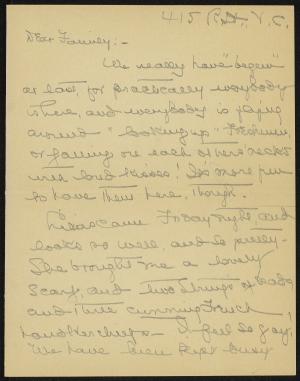 415 R.H. V.C.
Dear Fanney:-
We really have "begun"
at last, for practically everybody
is here, and everybody is flying
around "looking up" Freshmen,
or falling on each others necks
with loud kisses! It's more fun
to have them here, though.
came Friday night, and
looks so well, and so pretty.
She brought me a lovely
scarf, and two strings of beads
and three cunning French
handkerchiefs - I feel so gay!
We have been kept busy